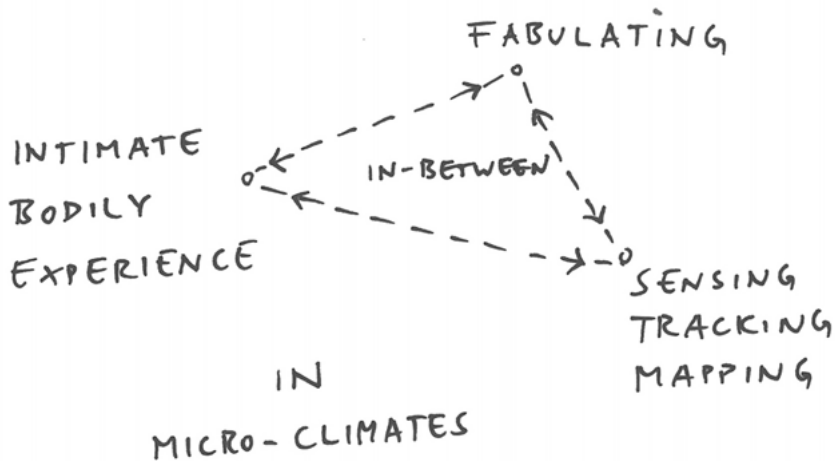 FABULATING
INTIMATE
BODILY
EXPERIENCE
IN-BETWEEN
SENSING
TRACKING
MAPPING
IN
MICRO-CLIMATES